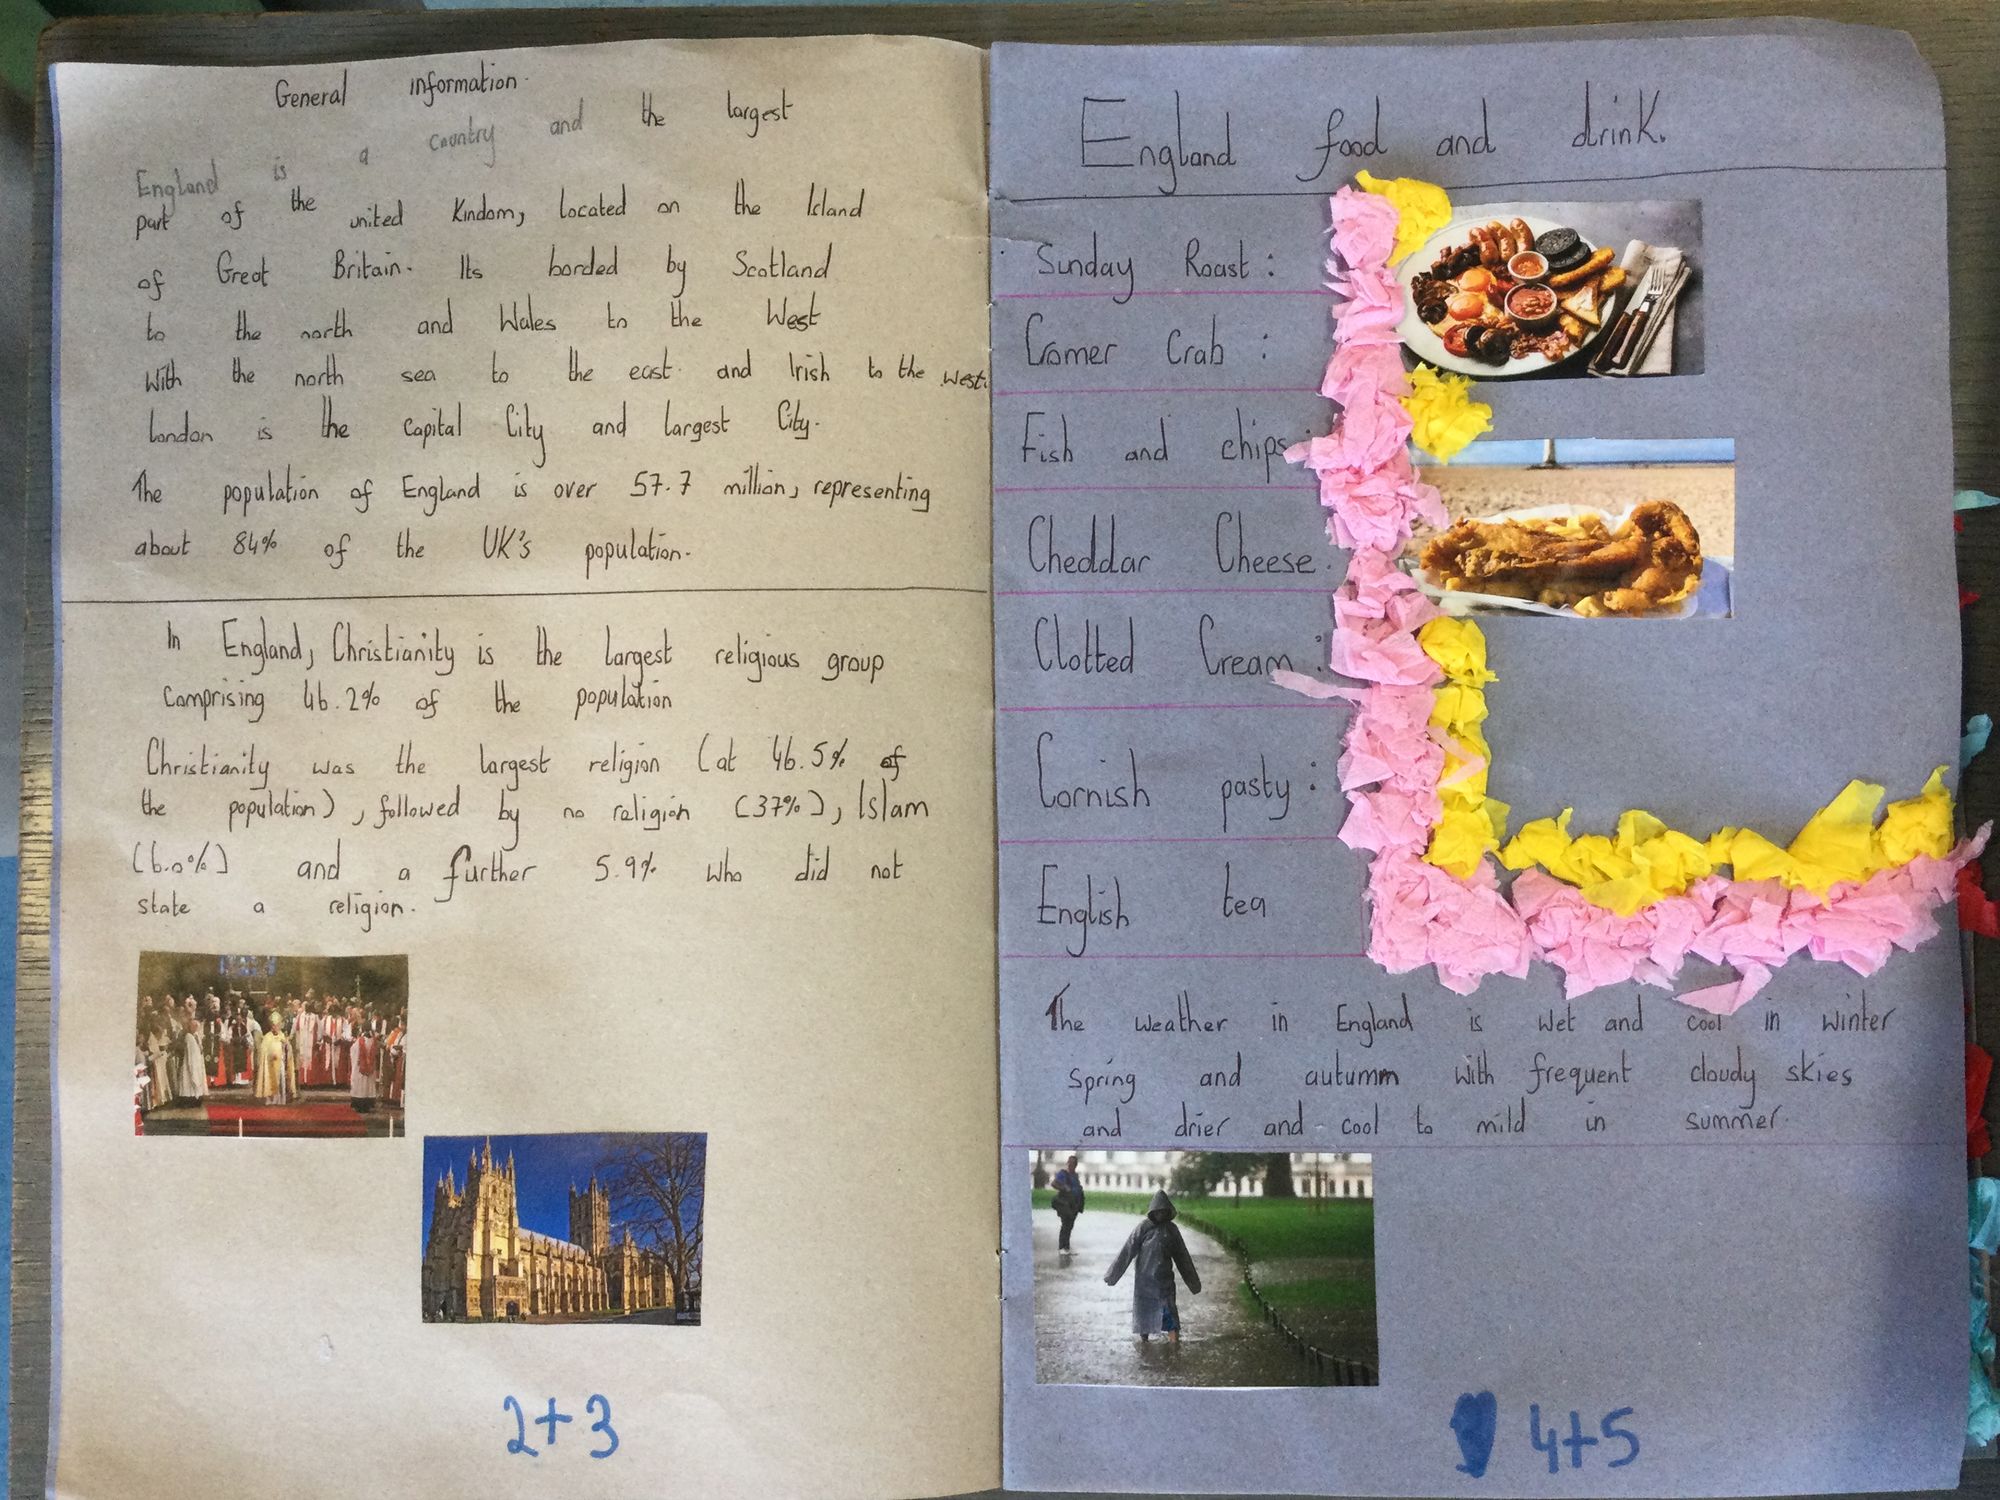 General information.
England is a country and the largest
part of the united Kindom, located on the Island
of Great Britain. Its borded by Scotland
to the north and Wales to the West
With the north sea to the east. and Irish to the west.
London is the capital City and largest City.
The population of England is over 57.7 million, representing
about 84% of the UK's population.
In England, Christianity is the largest religious group
Comprising 46.2% of the population
Christianity was the largest religion (at 46.5% of
the population), followed by no religion (37%), Islam
(6.0%) and a further 5.9% who did not
state a religion.
2+3
England food and drink.
Sunday Roast:
Cromer Crab:
Fish and chips:
Cheddar Cheese.
Clotted Cream:
Cornish pasty:
English tea
The weather in England is wet and cool in winter
spring and autumm with frequent cloudy skies
and drier and cool to mild in summer.
4+5